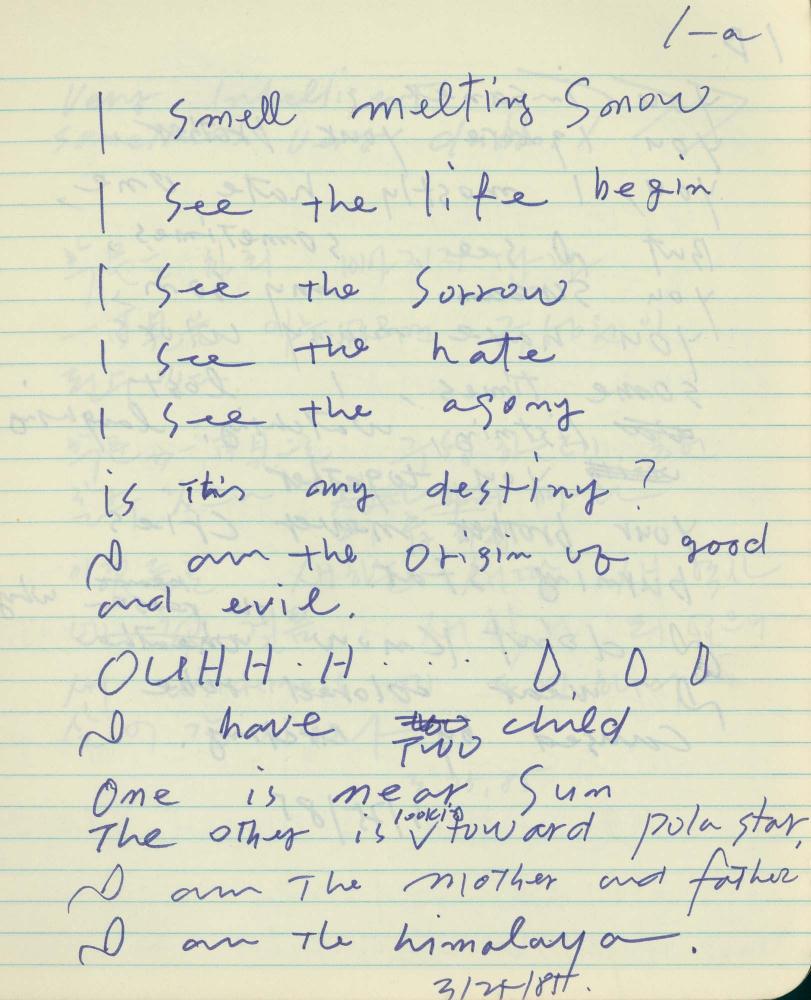 1-a
I smell melting Snow
I see the life begin
I see the sorrow
I see the hate
I see the agony
is this my destiny?
I am the origin of good
and evil.
OUHH.H.....D D D
I have TWO child
One is near Sun
The other is looking toward pola star,
I am The mother and father
I am the himalaya.